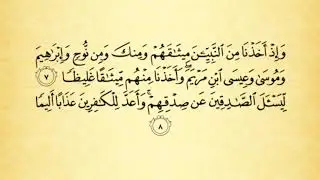 وَإِذْ أَخَذْنَا مِنَ النَّبِيِّـۧنَ مِيثَـٰقَهُمْ وَمِنكَ وَمِن نُّوحٍ وَإِبْرَٰهِيمَ
وَمُوسَىٰ وَعِيسَى ٱبْنِ مَرْيَمَ ۖ وَأَخَذْنَا مِنْهُم مِّيثَـٰقًا غَلِيظًا ٧
لِّيَسْـَٔلَ ٱلصَّـٰدِقِينَ عَن صِدْقِهِمْ ۚ وَأَعَدَّ لِلْكَـٰفِرِينَ عَذَابًا أَلِيمًا
٨